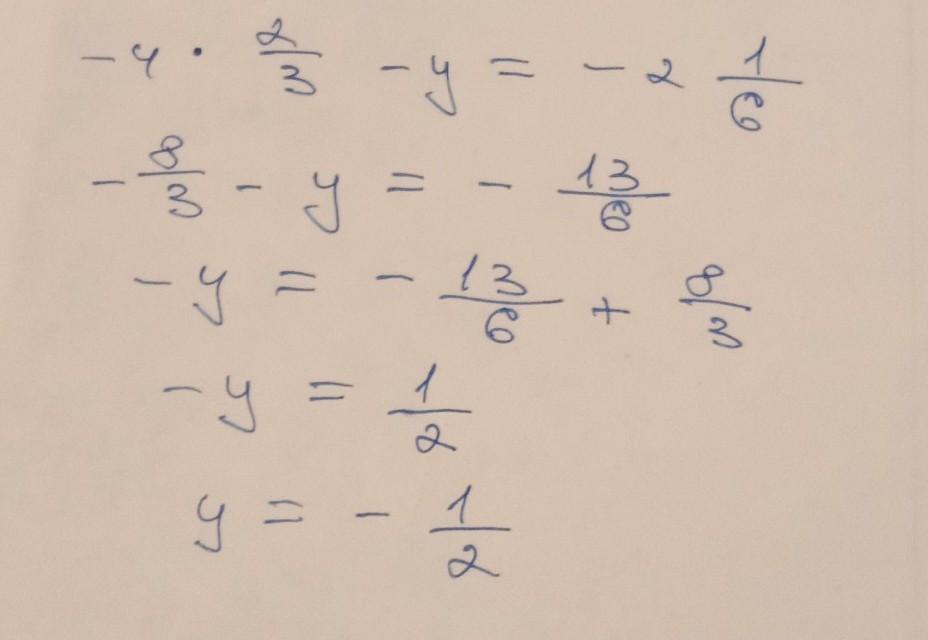 -4 · 2/3 - y = -2 1/6
-8/3 - y = -13/6
-y = -13/6 + 8/3
-y = 1/2
y = -1/2